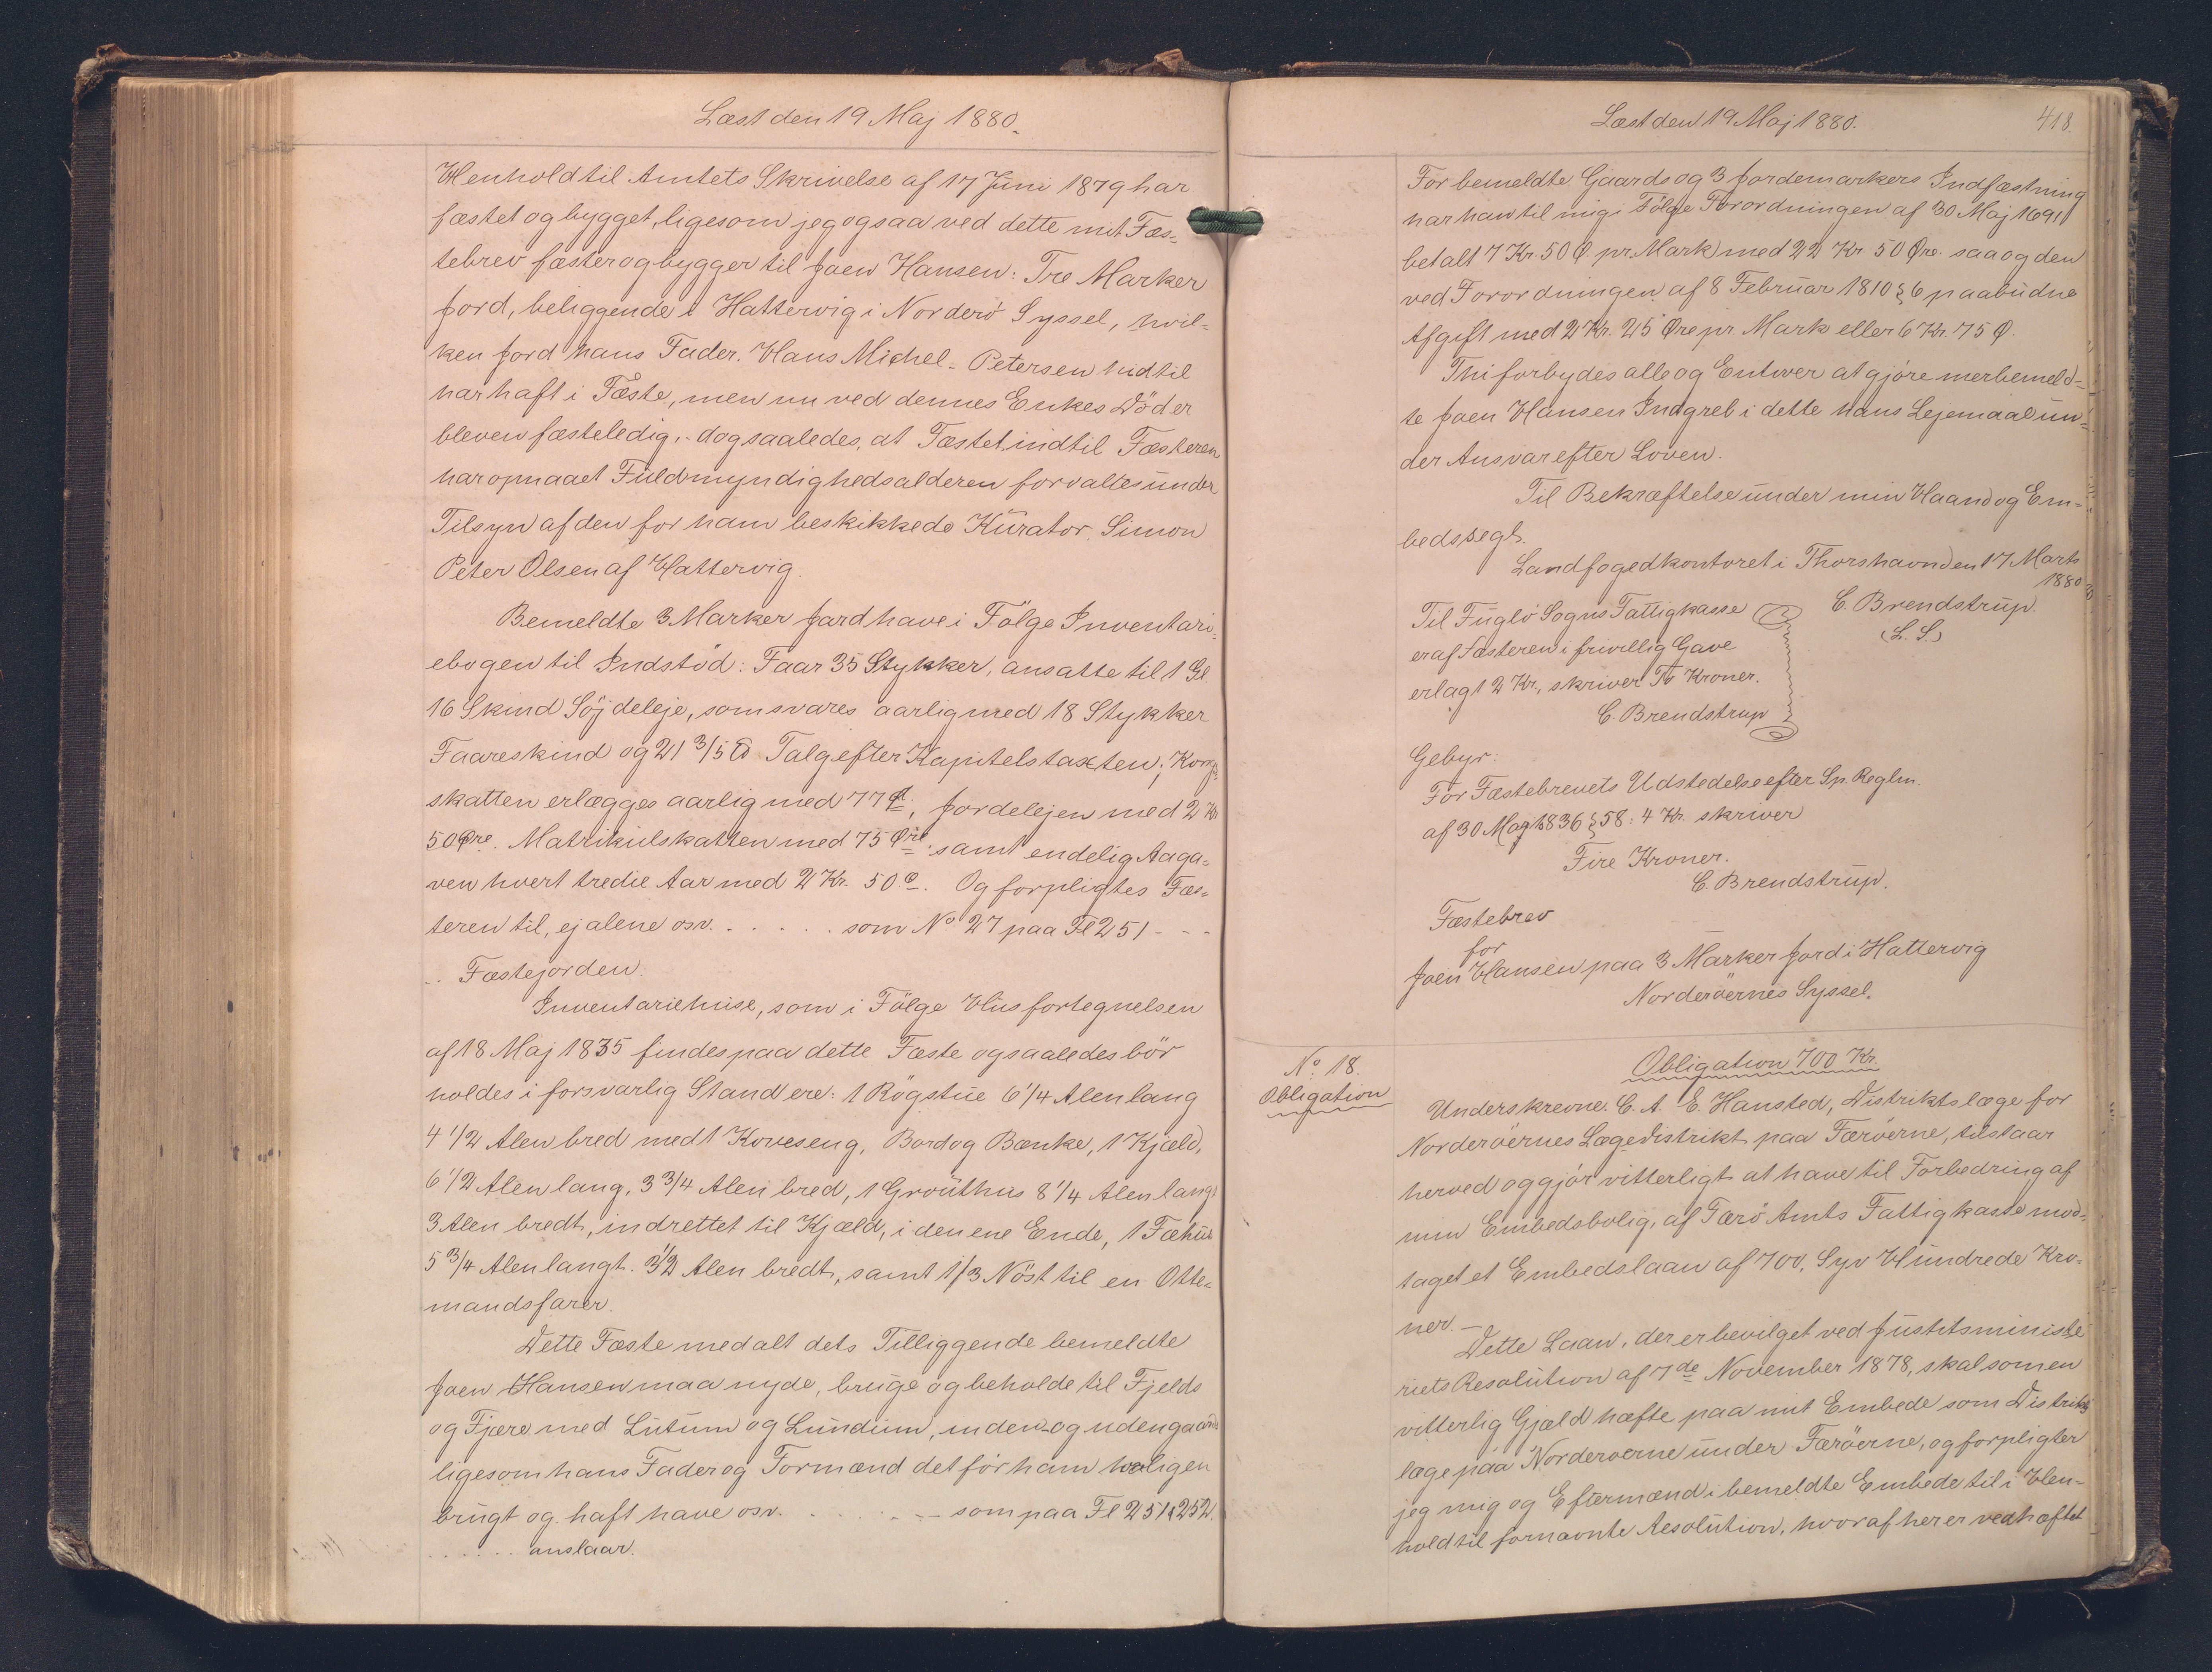 Læst den 19 Maj 1880.
Henhold til Amtets Skrivelse af 17 Juni 1879 har
fæstet og bygget, ligesom jeg ogsaa ved dette mit Fæs-
tebrev fæster og bygger til Joen Hansen: Tre Marker
Jord, beliggende i Hattervig i Norderö Syssel, hvil-
ken Jord hans Fader Hans Michel Petersen indtil
har haft i Fæste, men nu ved dennes Enkes Död er
bleven fæsteledig, dog saaledes, at Fæstet indtil Fæsteren
har opnaaet Fuldmyndighedsalderen forvaltes under
Tilsyn af den for ham beskikkede Kurator Simon
Peter Olsen af Hattervig.
Bemeldte 3 Marker Jord have i Fölge Inventari-
ebogen til Indstöd: Faar 35 Stykker, ansatte til 1 Gl
16 Skind Söjdeleje, som svares aarlig med 18 Stykker
Faareskind og 21 3/5 ℔ Talg efter Kapitelstaxten; Kong-
skatten erlægges aarlig med 77 Ø, Jordelejen med 2 Kr
50 Øre. Matrikulskatten med 75 Øre samt endelig Aaga-
ven hvert tredie Aar med 2 Kr. 50 Ø. Og forpligtes Fæs-
teren til, ej alene osv. . . . . . som No 27 paa Fl 251 - - -
.. Fæstejorden.
Inventariehuse, som i Fölge Husfortegnelsen
af 18 Maj 1835 findes paa dette Fæste og saaledes bör
holdes i forsvarlig Stand ere: 1 Rögstue 6 1/4 Alen lang
4 1/2 Alen bred med 1 Koveseng, Bord og Bænke, 1 Kjæld,
6 1/2 Alen lang, 3 3/4 Alen bred, 1 Grouthus 8 1/4 Alen langt
3 Alen bredt, indrettet til Kjæld, i den ene Ende, 1 Fæhus
5 3/4 Alen langt. 3 1/2 Alen bredt, samt 1/3 Nöst til en Otte-
mandsfarer.
Dette Fæste med alt dets Tilliggende bemeldte
Joen Hansen maa nyde, bruge og beholde til Fjelds
og Fjære med Lutum og Lundum, inden- og udengaards
ligesom hans Fader og Formænd det för ham
brugt og haft have osv. . . . . . . . som paa Fl 251 & 252.
. . . . . . anslaar.
Læst den 19 Maj 1880.
418.
For bemeldte Gaards og 3 Jordemarkers Indfæstning
har han til mig i Fölge Forordningen af 30 Maj 1691
betalt 7 Kr. 50 Ø pr. Mark med 22 Kr. 50 Øre. saa og den
ved Forordningen af 8 Februar 1810 § 6 paabudne
Afgift med 2 Kr. 25 Øre pr. Mark eller 6 Kr. 75 Ø.
Thi forbydes alle og Enhver at gjöre merbemeld-
te Joen Hansen Indgreb i dette hans Lejemaal un-
der Ansvar efter Loven.
Til Bekræftelse under min Haand og Em-
bedssegl.
Landfogedkontoret i Thorshavn den 17 Marts
1880
Til Fuglö Sogns Fattigkasse
C. Brendstrup.
er af Fæsteren i frivillig Gave
(L. S.)
erlagt 2 Kr., skriver To Kroner.
C. Brendstrup
Gebyr:
For Fæstebrevets Udstedelse efter Sp. Reglm.
af 30 Marts 1836 § 58: 4 Kr. skriver
Fire Kroner.
C. Brendstrup.
Fæstebrev
for
Joen Hansen paa 3 Marker Jord i Hattervig
Norderöernes Syssel.
No. 18.
Obligation
Obligation 700 Kr.
Underskrevne C. A. E. Hansted, Distriktslæge for
Norderöernes Lægedistrikt paa Færöerne, tilstaar
herved og gjör vitterligt at have til Forbedring af
min Embedsbolig, af Færö Amts Fattigkasse mod-
taget et Embedslaan af 700, Syv Hundrede Kro-
ner. —
Dette Laan, der er bevilget ved Justitsministe
riets Resolution af 7de November 1878, skal som en
vitterlig Gjæld hæfte paa mit Embede som Distrikts
læge paa Norderöerne under Færöerne, og forpligter
jeg mig og Eftermænd i bemeldte Embede til i Hen-
hold til fornævnte Resolution, hvoraf her er vedhæftet